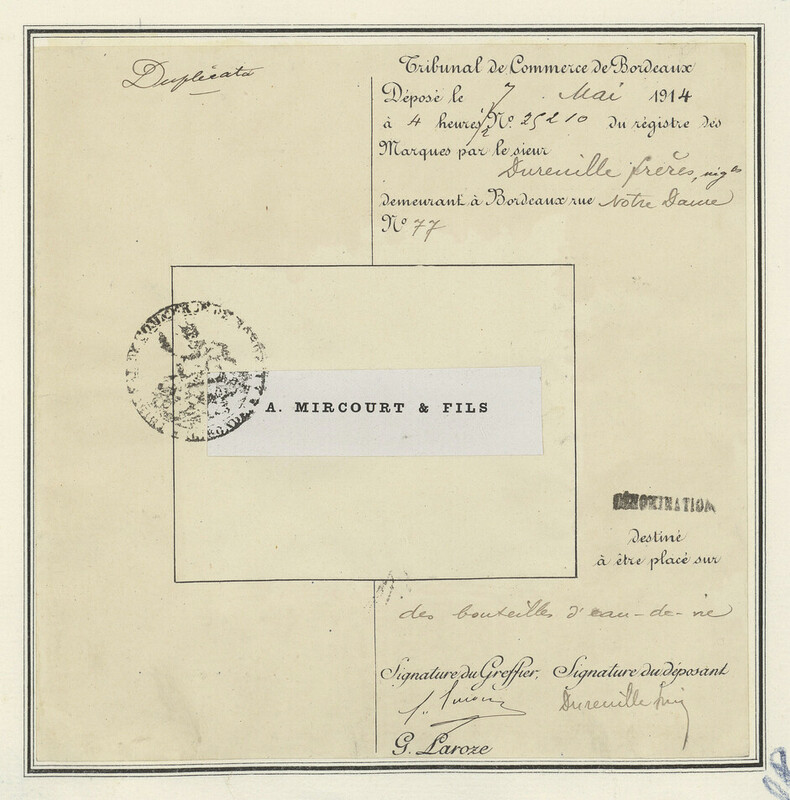 Duplicata
Tribunal de Commerce de Bordeaux
Déposé le 7 Mai 1914
à 4 heures 1/2 N° 25210 du régistre des
Marques par le sieur
Dureuille frères, nég ts
demeurant à Bordeaux rue Notre Dame
N° 77
A. MIRCOURT & FILS
DÉNOMINATION
destiné
à être placé sur
des bouteilles d'eau-de-vie
Signature du Greffier, Signature du déposant
Dureuille
G. Laroze